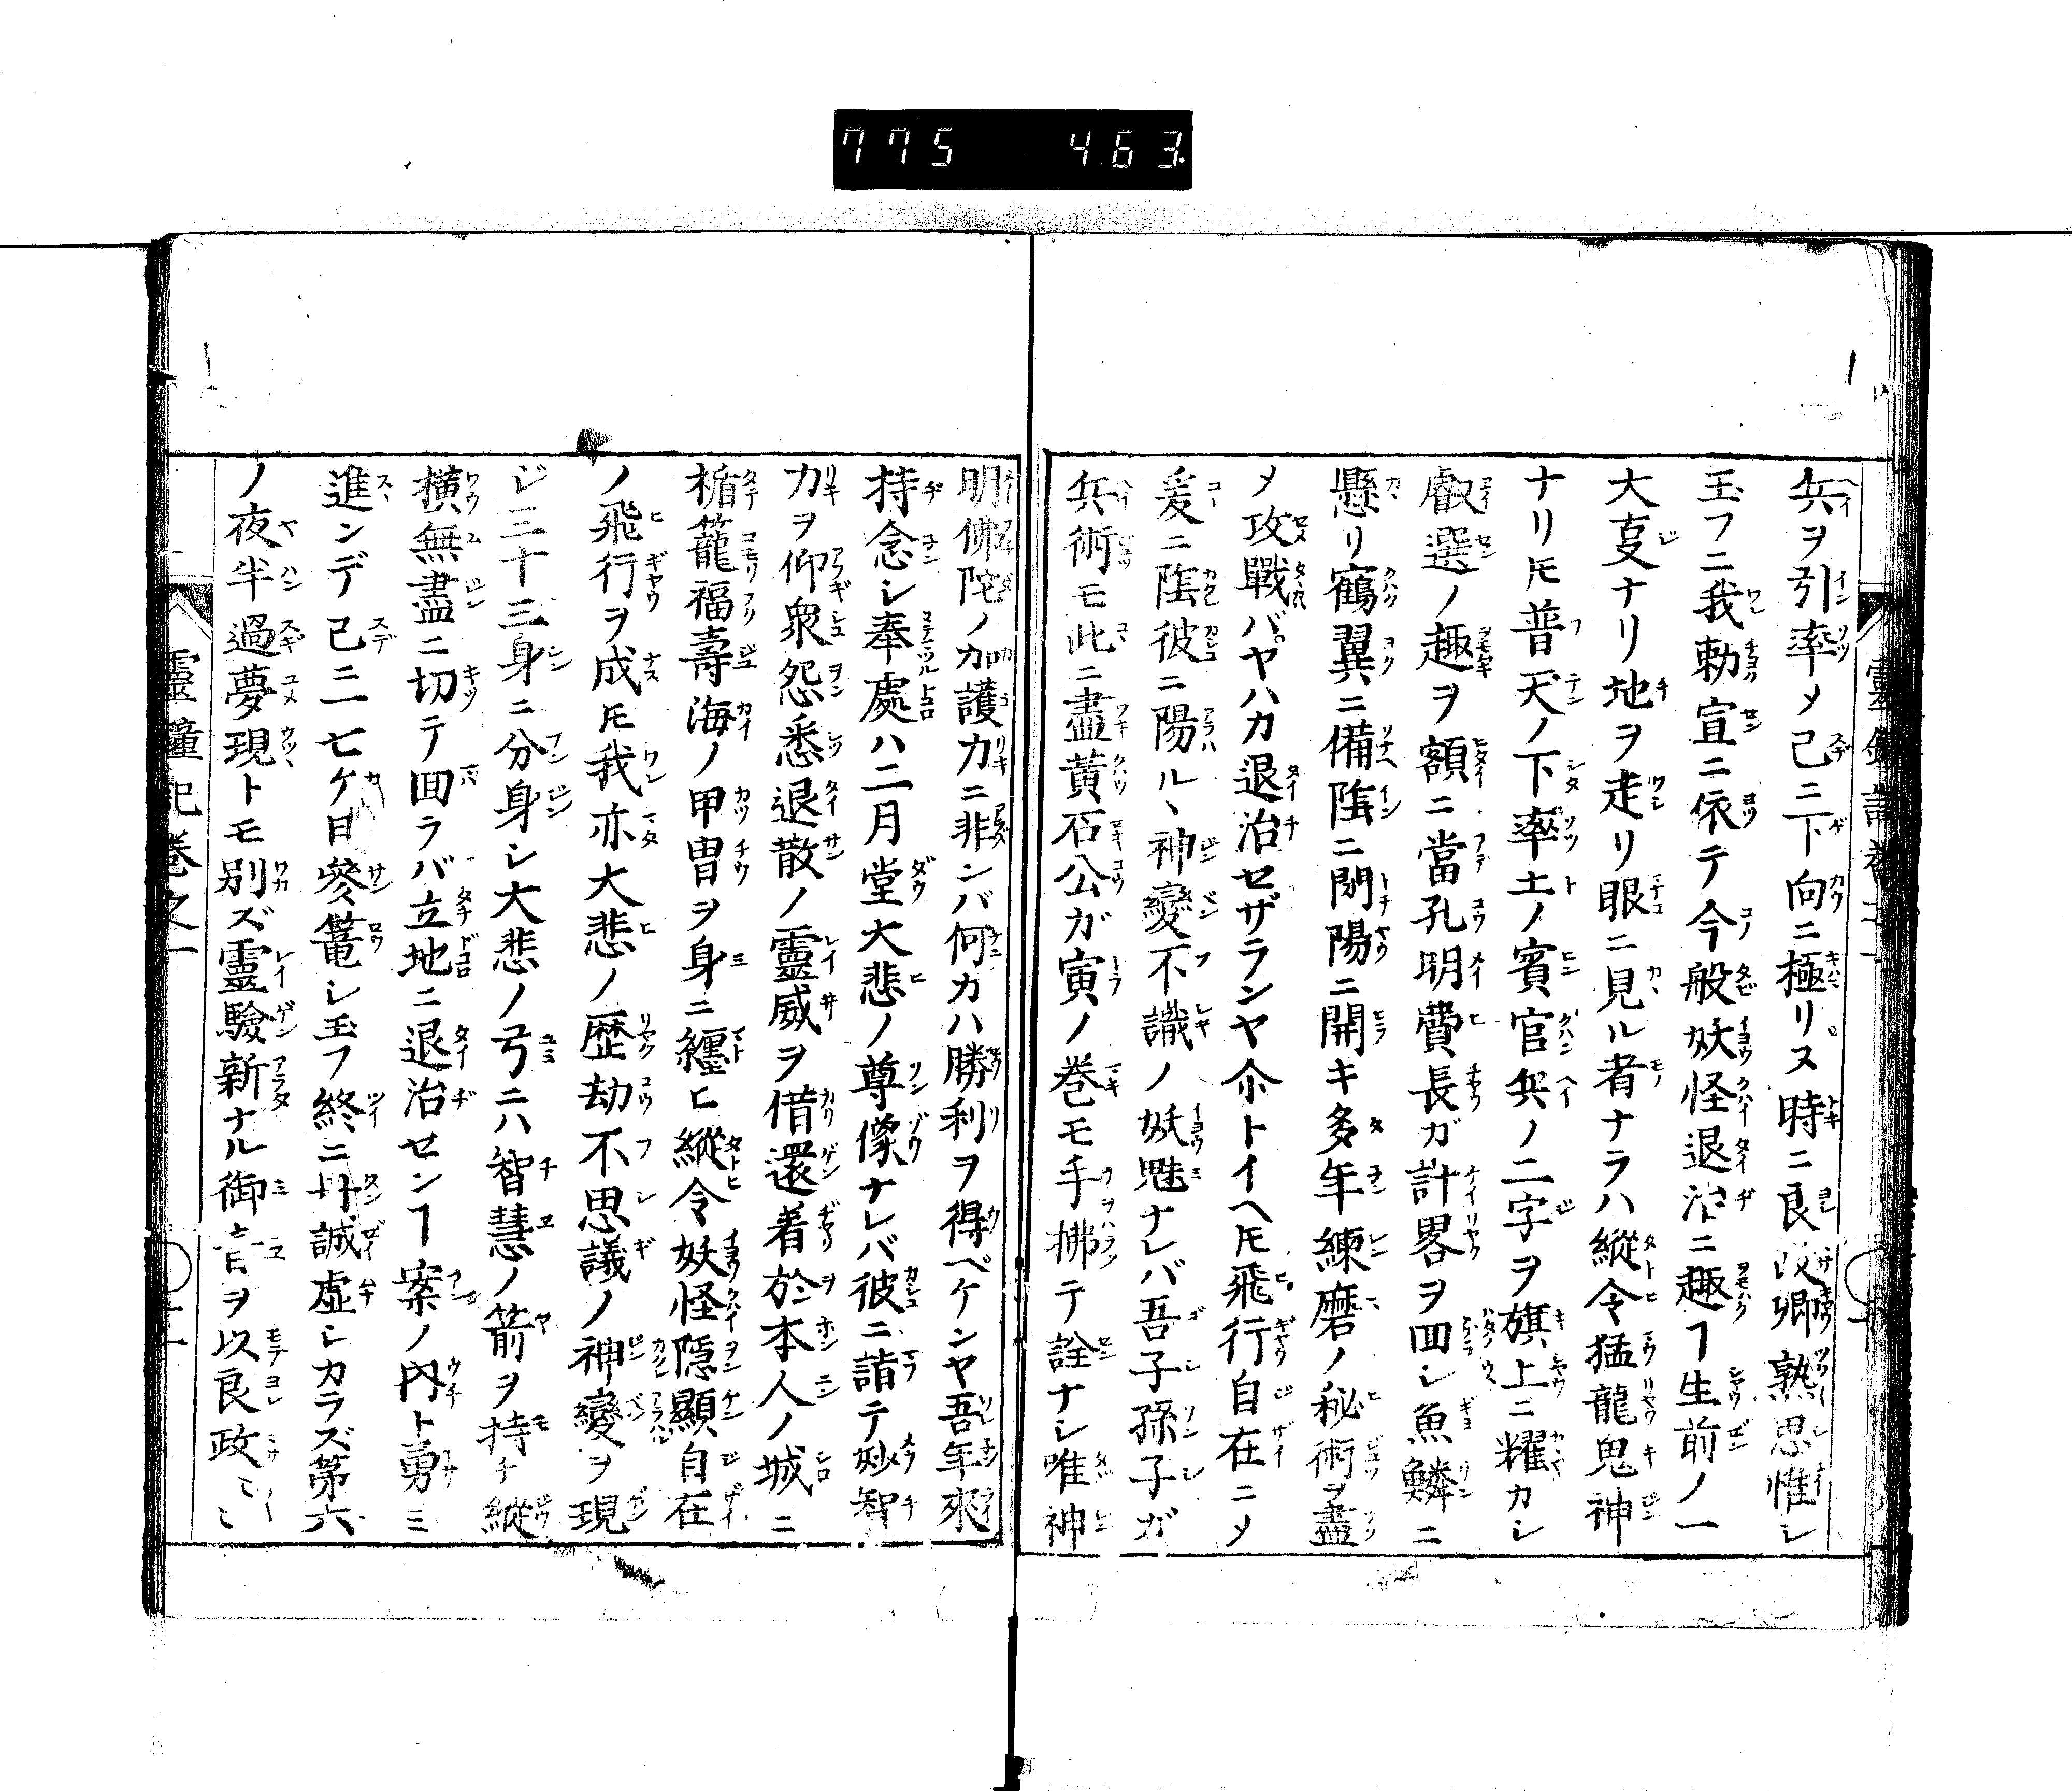 775 463
兵ヲ引率メ己ニ下向ニ極リヌ時ニ良政卿熟思惟シ
玉フニ我勅宣ニ依テ今般妖怪退治ニ趣ヿ生前ノ一
大叓ナリ地ヲ走リ眼ニ見ル者ナラハ縱令猛龍鬼神
ナリ𪜈普天ノ下率土ノ賓官兵ノ二字ヲ旗上ニ耀カシ
叡選ノ趣ヲ額ニ當孔明費長ガ計畧ヲ回シ魚鱗ニ
懸リ鶴翼ニ備陰ニ閉陽ニ開キ多年練磨ノ秘術ヲ盡
メ攻戰バヤハカ退治セザランヤ尒トイヘ𪜈飛行自在ニメ
爰ニ隂彼ニ陽ル丶神變不識ノ妖魅ナレバ吾子孫子ガ
兵術モ此ニ盡黃石公ガ寅ノ巻モ手拂テ詮ナシ唯神
明佛陀ノ加護力ニ非ンバ何カハ勝利ヲ得ベケンヤ吾年來
持念シ奉處ハ二月堂大悲ノ尊像ナレバ彼ニ詣テ妙智
力ヲ仰衆怨悉退散ノ靈威ヲ借還着於本人ノ城ニ
楯籠福壽海ノ甲冑ヲ身ニ纒ヒ縱令妖怪隱顯自在
ノ飛行ヲ成𪜈我亦大悲ノ歴劫不思議ノ神變ヲ現
ジ三十三身ニ分身シ大悲ノ弓ニハ智慧ノ箭ヲ持チ縱
橫無盡ニ切テ回ラバ立地ニ退治センヿ案ノ內ト勇ミ
進ンデ己三七ケ日參篭シ玉フ終ニ丹誠虛シカラズ第六
ノ夜半過夢現トモ別ズ靈驗新ナル御音ヲ以良政
靈鐘記巻之一